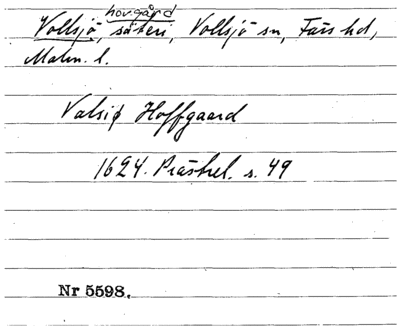 hovgård
Vollsjö, säteri, Vollsjö sn, Färs hd,
Malm. l.
Valsiø Hoffgaard
1624. Prästrel. s. 49
Nr 5598.